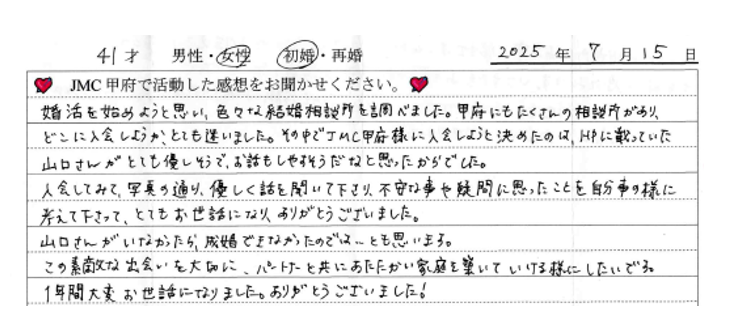 41才 男性・女性 初婚・再婚 2025年7月15日
JMC甲府で活動した感想をお聞かせください。
婚活を始めようと思い、色々な結婚相談所を調べました。甲府にもたくさんの相談所があり、
どこに入会しようか、とても迷いました。その中でJMC甲府様に入会しようと決めたのは、HPに載っていた
山口さんがとても優しそうで、お話もしやすそうだなと思ったからでした。
入会してみて、写真の通り、優しく話を聞いて下さり、不安な事や疑問に思ったことを自分事の様に
考えて下さって、とてもお世話になり、ありがとうございました。
山口さんがいなかったら、成婚できなかったのでは…とも思います。
この素敵な出会いを大切に、パートナーと共にあたたかい家庭を築いていける様にしたいです。
1年間大変お世話になりました。ありがとうございました!